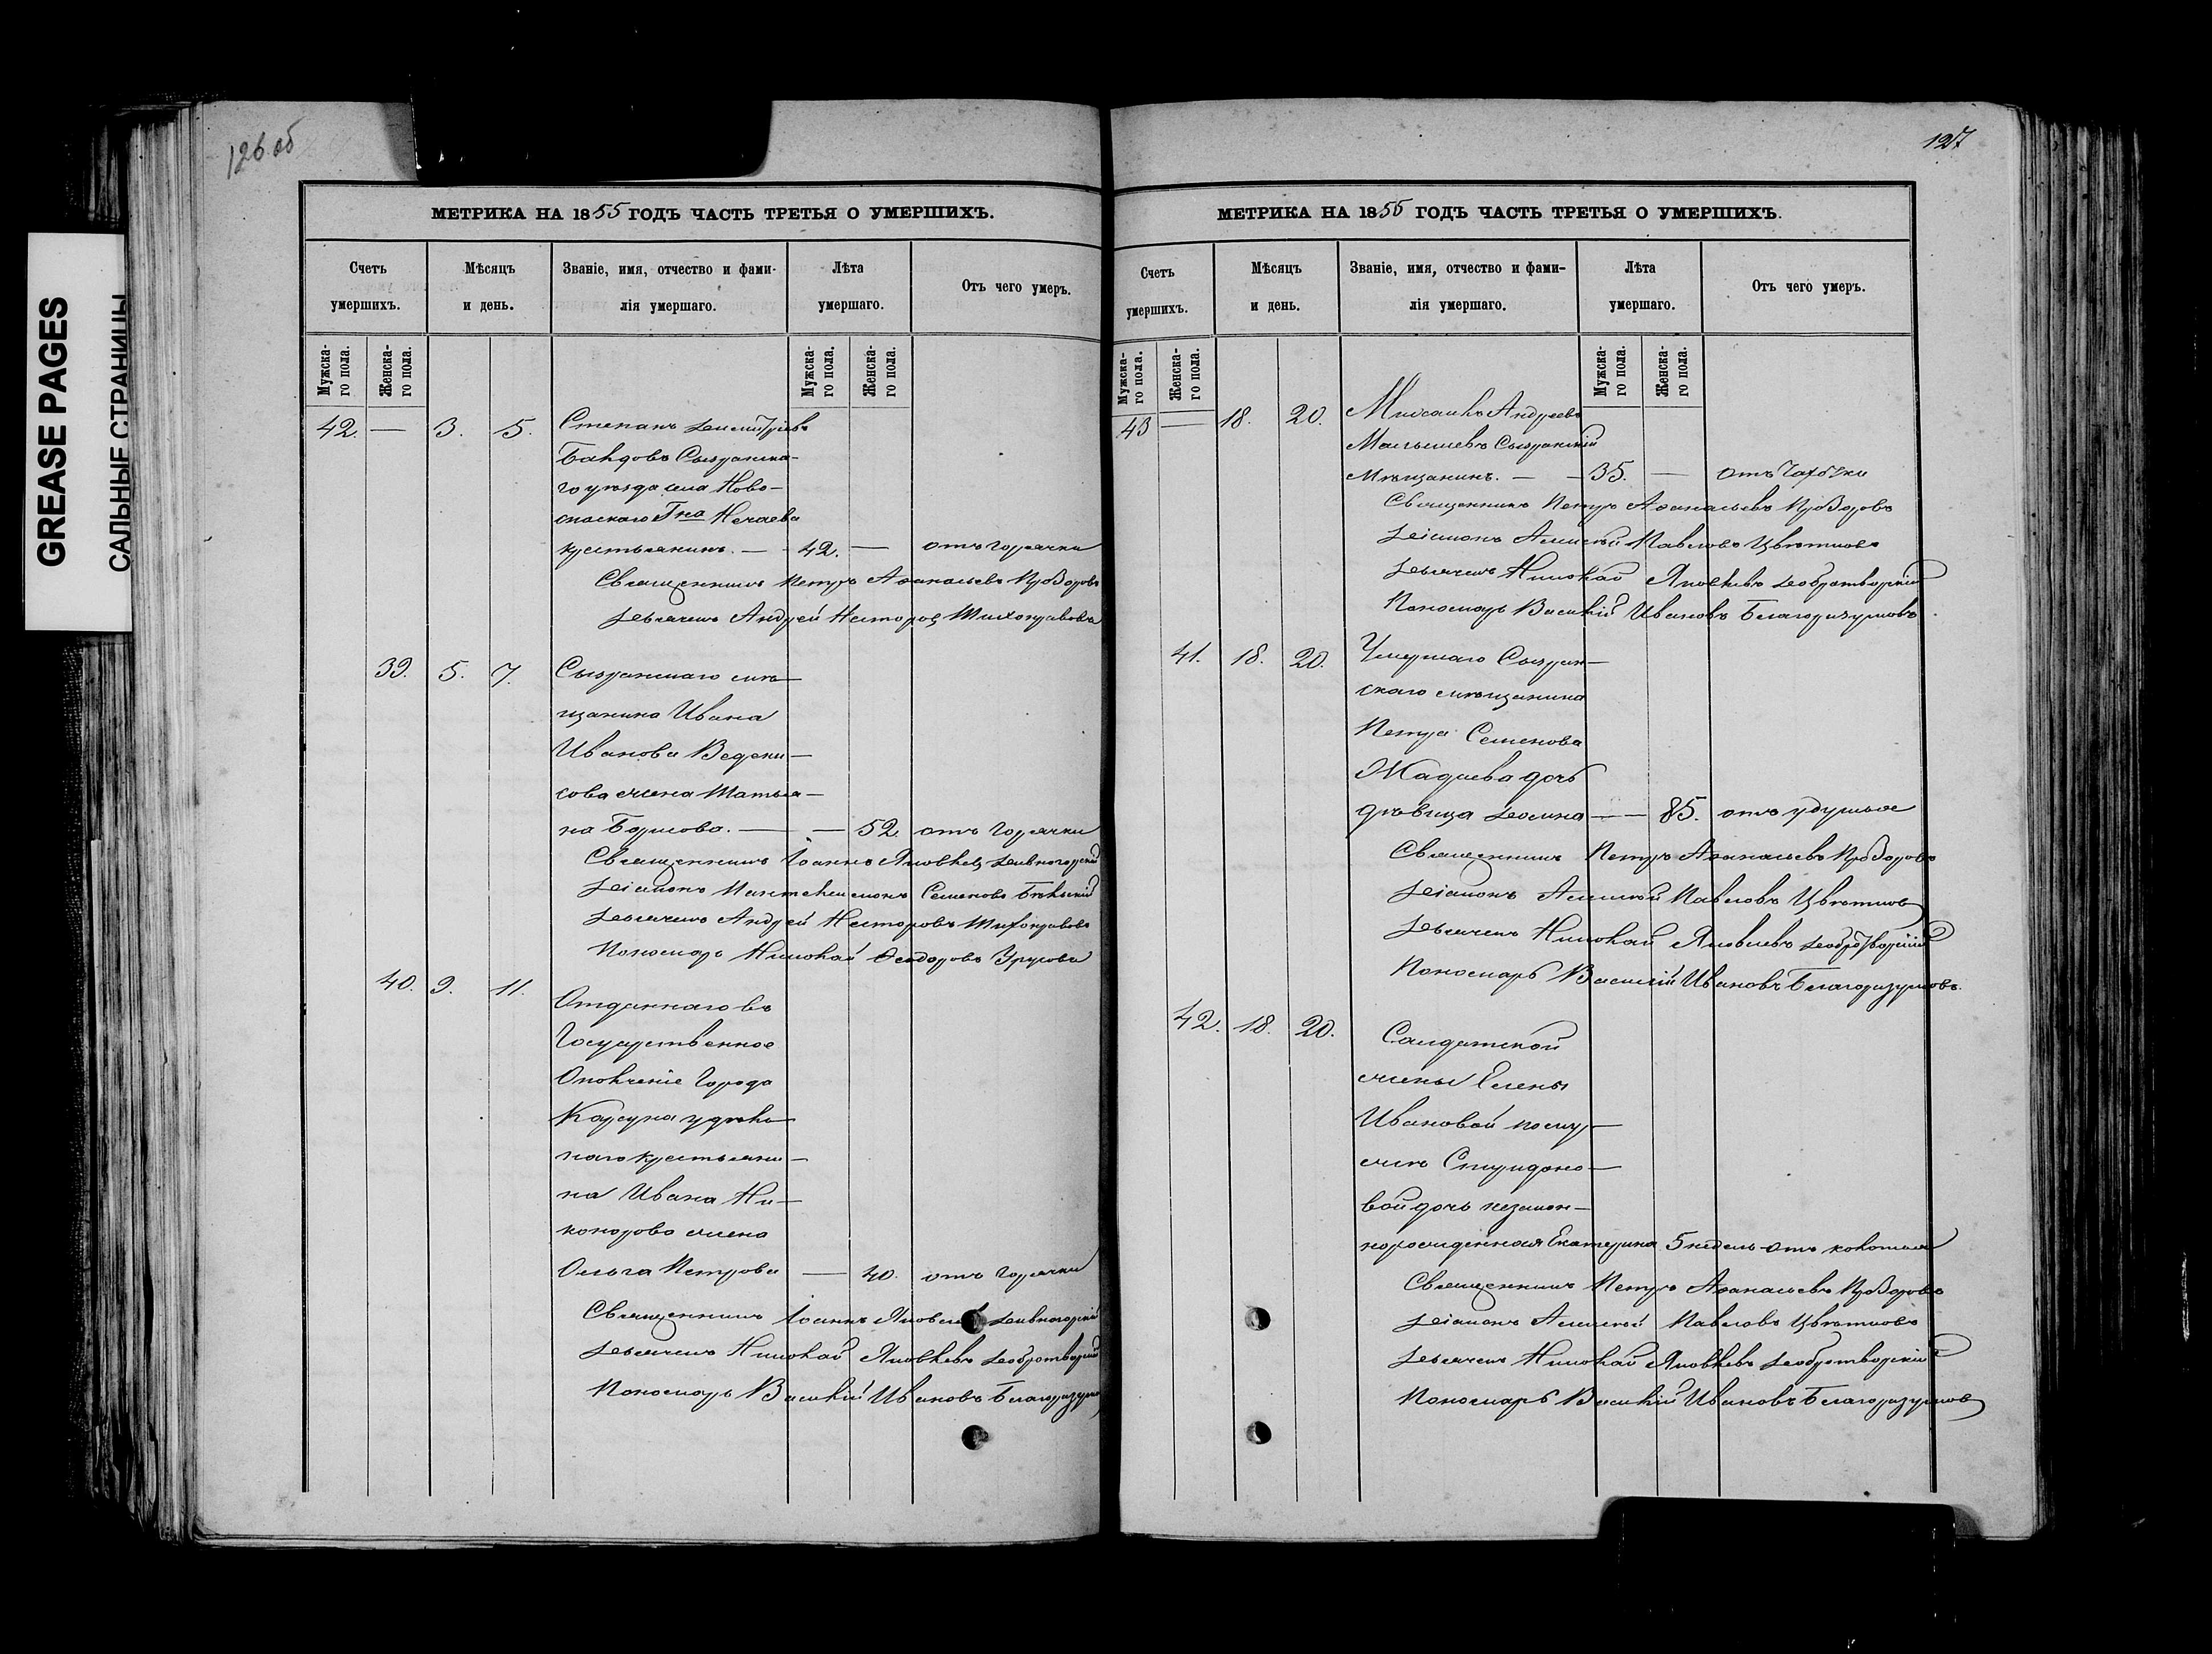 GREASE PAGES
САЛЬНЫЕ СТРАНИЦЫ
126 об
МЕТРИКА НА 1855 ГОДЪ ЧАСТЬ ТРЕТЬЯ О УМЕРШИХЪ.
Счетъ умершихъ.
Мѣсяцъ и день.
Званіе, имя, отчество и фами-
лія умершаго.
Лѣта умершаго.
Отъ чего умеръ.
Мужска-
го пола.
Женска-
го пола.
Мужска-
го пола.
Женска-
го пола.
42. — 3. 5. Степанъ Димитріевъ
Сызранска-
го уѣзда села Ново-
спаскаго Гна Нечаева
крестьянинъ. — 42. — отъ горячки
Священникъ Петръ Афанасьевъ Прозоровъ
Дьячекъ Андрей Несторовъ Тихонравовъ
39. 5. 7. Сызранскаго мѣ-
щанина Ивана
Иванова Ведени-
сова жена Татья-
на Борисова. — — 52. отъ горячки
Священникъ Іоаннъ Яковлевъ Дивногорскій
Діаконъ Пантелеимонъ Семеновъ Бѣльскій
Дьячекъ Андрей Несторовъ Тихонравовъ
Пономарь Николай Феодоровъ
40. 9. 11. Отданнаго въ
Государственное
Ополченіе Города
Карсуна удѣль-
наго крестьяни-
на Ивана Ни-
конорова жена
Ольга Петрова — 40. отъ горячки
Священникъ Іоаннъ Яковлевъ Дивногорскій
Дьячекъ Николай Яковлевъ Добротворскій
Пономарь Василій Ивановъ Благоразумовъ
127
МЕТРИКА НА 1855 ГОДЪ ЧАСТЬ ТРЕТЬЯ О УМЕРШИХЪ.
Счетъ умершихъ.
Мѣсяцъ и день.
Званіе, имя, отчество и фами-
лія умершаго.
Лѣта умершаго.
Отъ чего умеръ.
Мужска-
го пола.
Женска-
го пола.
Мужска-
го пола.
Женска-
го пола.
43 — 18. 20. Михаилъ Андреевъ
Малышевъ Сызранскій
мѣщанинъ. — 35. — отъ чахотки
Священникъ Петръ Афанасьевъ Прозоровъ
Діаконъ Алексѣй Павловъ Цвѣтковъ
Дьячекъ Николай Яковлевъ Добротворскій
Пономарь Василій Ивановъ Благоразумовъ
41. 18. 20. Умершаго Сызран-
скаго мѣщанина
Петра Семенова
дочь
дѣвица Домна — — 85. отъ удушья
Священникъ Петръ Афанасьевъ Прозоровъ
Діаконъ Алексѣй Павловъ Цвѣтковъ
Дьячекъ Николай Яковлевъ Добротворскій
Пономарь Василій Ивановъ Благоразумовъ.
42. 18. 20. Салдатской
жены Елены
Ивановой по му-
жѣ Спиридоно-
вой дочь незакон-
норожденная Екатерина 5 недель отъ колотья
Священникъ Петръ Афанасьевъ Прозоровъ
Діаконъ Алексѣй Павловъ Цвѣтковъ
Дьячекъ Николай Яковлевъ Добротворскій
Пономарь Василій Ивановъ Благоразумовъ